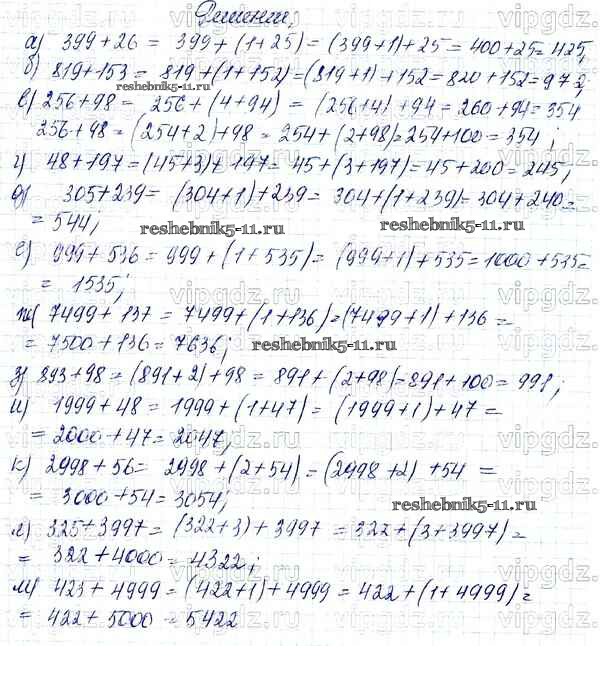 Решение;
а) 399+26 = 399+(1+25)=(399+1)+25=400+25=425;
б) 819+153 = 819+(1+152)=(819+1)+152=820+152=972;
в) 256+98 = 256+(4+94) = (256+4)+94=260+94=354
256+98=(254+2)+98=254+(2+98)=254+100=354;
г) 48+197=(45+3)+197=45+(3+197)=45+200=245;
д) 305+239= (304+1)+239= 304+(1+239)=304+240=
= 544;
reshebnik5-11.ru reshebnik5-11.ru
е) 999+536=999+(1+535)= (999+1)+535=1000+535=
= 1535;
ж) 7499+137 = 7499+(1+136)=(7499+1)+136=
= 7500+136=7636;
reshebnik5-11.ru
з) 893+98=(891+2)+98=891+(2+98)=891+100=991;
и) 1999+48=1999+(1+47)= (1999+1)+47=
= 2000+47=2047;
к) 2998+56= 2998+(2+54)=(2998+2)+54 =
= 3000+54=3054;
reshebnik5-11.ru
л) 325+3997=(322+3)+3997 =322+(3+3997)=
= 322+4000=4322;
м) 423+4999=(422+1)+4999=422+(1+4999)=
= 422+5000=5422
vipgdz.ru